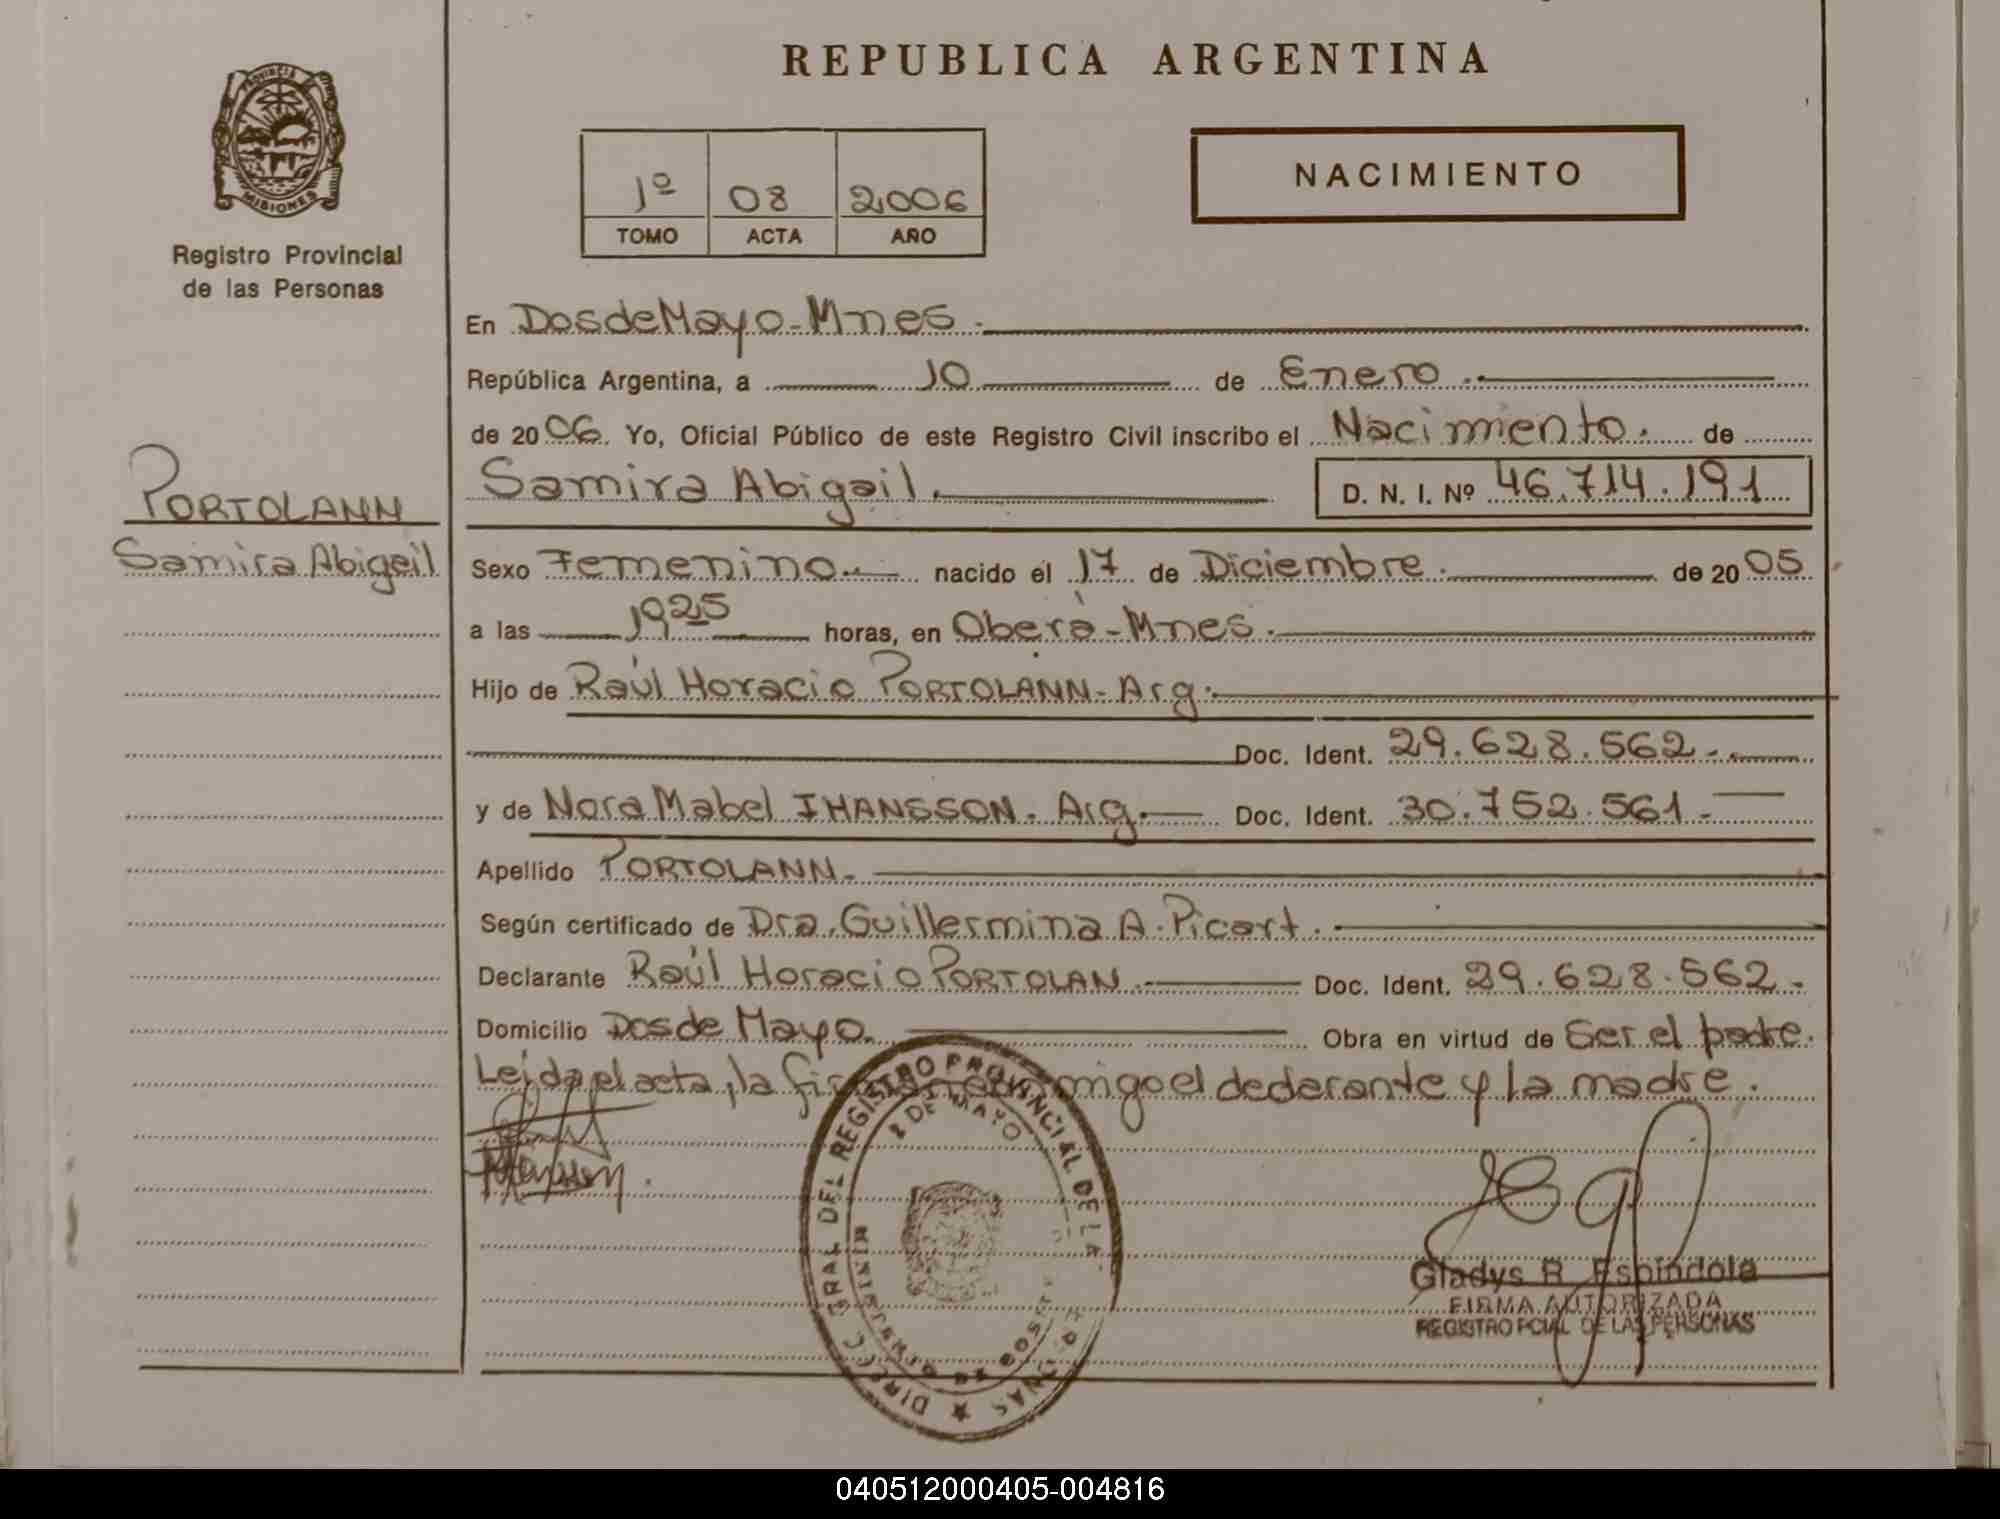 REPUBLICA ARGENTINA
PROVINCIA DE
MISIONES
Registro Provincial
de las Personas
1º 08 2006
TOMO ACTA AÑO
NACIMIENTO
En Dos de Mayo - Mnes.
República Argentina, a 10 de Enero.
de 2006. Yo, Oficial Público de este Registro Civil inscribo el Nacimiento. de
Samira Abigail. D. N. I. Nº 46.714.191
PORTOLANN
Samira Abigail
Sexo Femenino.- nacido el 17 de Diciembre. de 2005
a las 1925 horas, en Oberá - Mnes.
Hijo de Raúl Horacio PORTOLANN - Arg.
Doc. Ident. 29.628.562.-
y de Nora Mabel IHANSSON. Arg. Doc. Ident. 30.752.561.-
Apellido PORTOLANN.
Según certificado de Dra. Guillermina A. Picart.
Declarante Raúl Horacio PORTOLAN. Doc. Ident. 29.628.562.-
Domicilio Dos de Mayo. Obra en virtud de Ser el padre.
Leída el acta, la conmigo el declarante y la madre.
DIRECC GRAL DEL REGISTRO PROVINCIAL DE LA
2 DE MAYO
Gladys R. Espíndola
FIRMA AUTORIZADA
REGISTRO PCIAL DE LAS PERSONAS
040512000405-004816